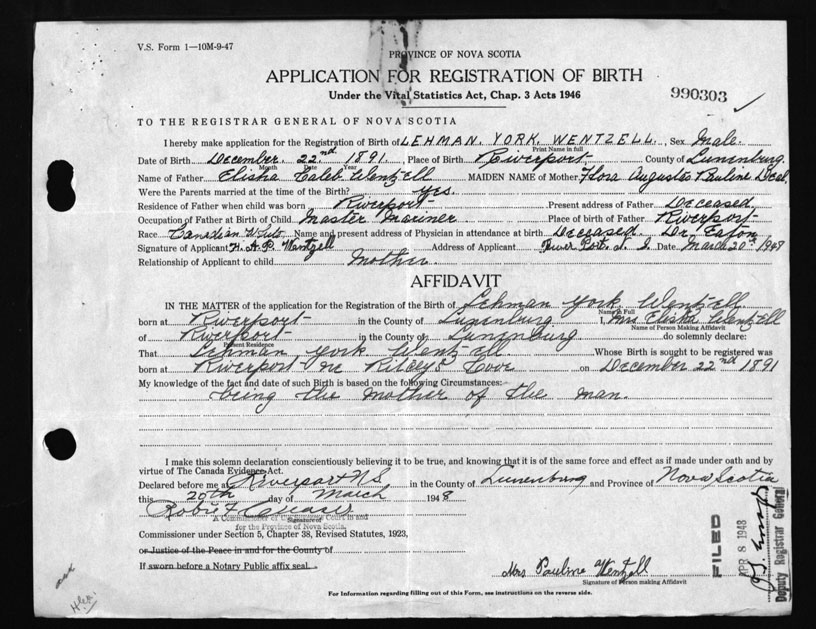 V.S. Form 1—10M-9-47
PROVINCE OF NOVA SCOTIA
APPLICATION FOR REGISTRATION OF BIRTH
Under the Vital Statistics Act, Chap. 3 Acts 1946
990303
TO THE REGISTRAR GENERAL OF NOVA SCOTIA
I hereby make application for the Registration of Birth of LEHMAN. YORK. WENTZELL. Sex Male.
Print Name in full
Date of Birth December. 22nd 1891. Place of Birth Riverport County of Lunenburg.
Month Date Year
Name of Father Elisha Caleb Wentzell MAIDEN NAME of Mother Flora Augusta Pauline
Were the Parents married at the time of Birth? yes.
Residence of Father when child was born Riverport Present address of Father Deceased.
Occupation of Father at Birth of Child Master Mariner Place of birth of Father Riverport
Race Canadian White Name and present address of Physician in attendance at birth Deceased. Dr. Eaton
Signature of Applicant F. A. P. Wentzell Address of Applicant River Port. N. S. Date March 20th 1948
Relationship of Applicant to child Mother.
AFFIDAVIT
IN THE MATTER of the application for the Registration of the Birth of Lehman York Wentzell
Name in Full
born at Riverport in the County of Lunenburg I, Mrs Elisha Wentzell
Name of Person Making Affidavit
of Riverport in the County of Lunenburg do solemnly declare:
Present Residence
That Lehman York Wentzell Whose Birth is sought to be registered was
born at Riverport Cove on December 22nd 1891
My knowledge of the fact and date of such Birth is based on the following Circumstances:
being the mother of the man.
I make this solemn declaration conscientiously believing it to be true, and knowing that it is of the same force and effect as if made under oath and by
virtue of The Canada Evidence Act.
Declared before me at Riverport NS in the County of Lunenburg and Province of Nova Scotia
this 20th day of March 1948
A Commissioner of Court in and
Signature of
for the Province of Nova Scotia,
Commissioner under Section 5, Chapter 38, Revised Statutes, 1923,
or Justice of the Peace in and for the County of
If sworn before a Notary Public affix seal
Mrs Pauline Wentzell
Signature of Person making Affidavit
For Information regarding filling out of this Form, see instructions on the reverse side.
FILED
APR 8 1948
Deputy Registrar General